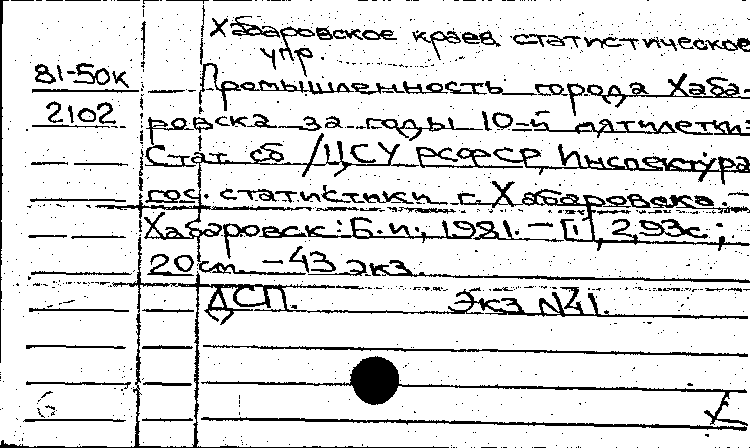 Хабаровское краев. статистическое
упр.
81-50к Промышленность города Хаба-
2102 ровска за годы 10-й пятилетки:
Стат. сб. /ЦСУ РСФСР, Инспектура
гос. статистики г. Хабаровска. -
Хабаровск: Б.и., 1981. - [1], 2,93с;
20 см. - 43 экз.
ДСП. Экз N41.
6